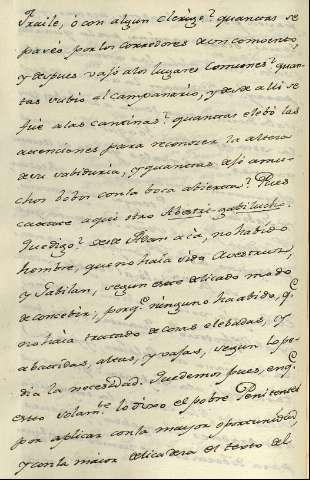 Fraile, ó con algun clerigo? quantas se
paseó por los corredores de un comvento,
y despues vajó a los lugares comunes? quan-
tas subio al campanario, y desde allí se
fue a las cantinas? quantas elebó las
atenciones para reconocer la altura
de su sabiduria, y quantas dejó a mu-
chos bobos con la boca abierta? Pues
cataate aqui otro Abestru-gabilucho.
Que digo? desde Adan acá, no habido
hombre, que no haia sido Avestruz,
y Gabilan, segun este delicado modo
de concebir; porq.e ninguno ha abido, q.e
no haia tratado de cosas elebadas, y
abatidas, altas, y vajas, segun lo pe-
dia la necesidad. Quedemos pues, en q.e
esto solam.te lo dixo el pobre Penitente
por aplicar con la mayor oportunidad,
y con la maior delicadeza el texto del